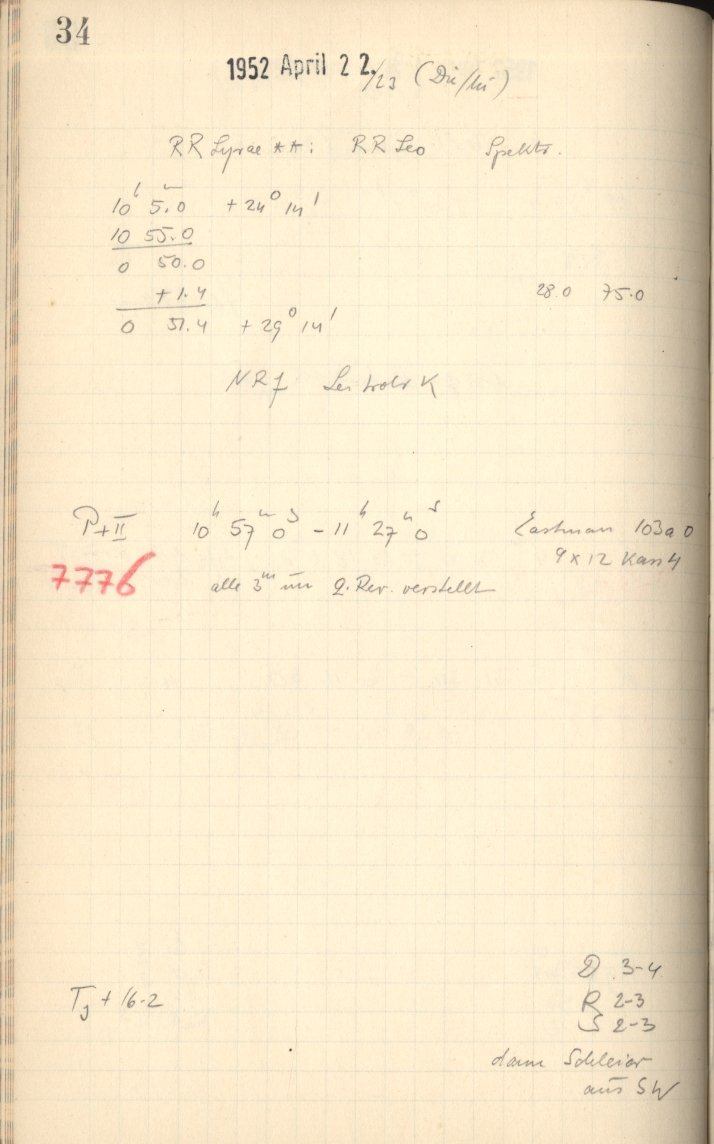 34
1952 April 22./23 (Die/Mi)
RR Lyrae **: RR Leo Spektr.
10h 5m.0 + 24° 14'
10 55.0
0 50.0
+ 1.4
28.0 75.0
0 51.4 + 29° 14'
NR 7 Leitrohr K
P+II 10h 57m 0s - 11h 27m 0s Eastman 103a0
9 x 12 Kass 4
7776 alle 3m um 2. Rev. verstellt
D 3-4
T + 16.2 R 2-3
S 2-3
dann Schleier
aus SW